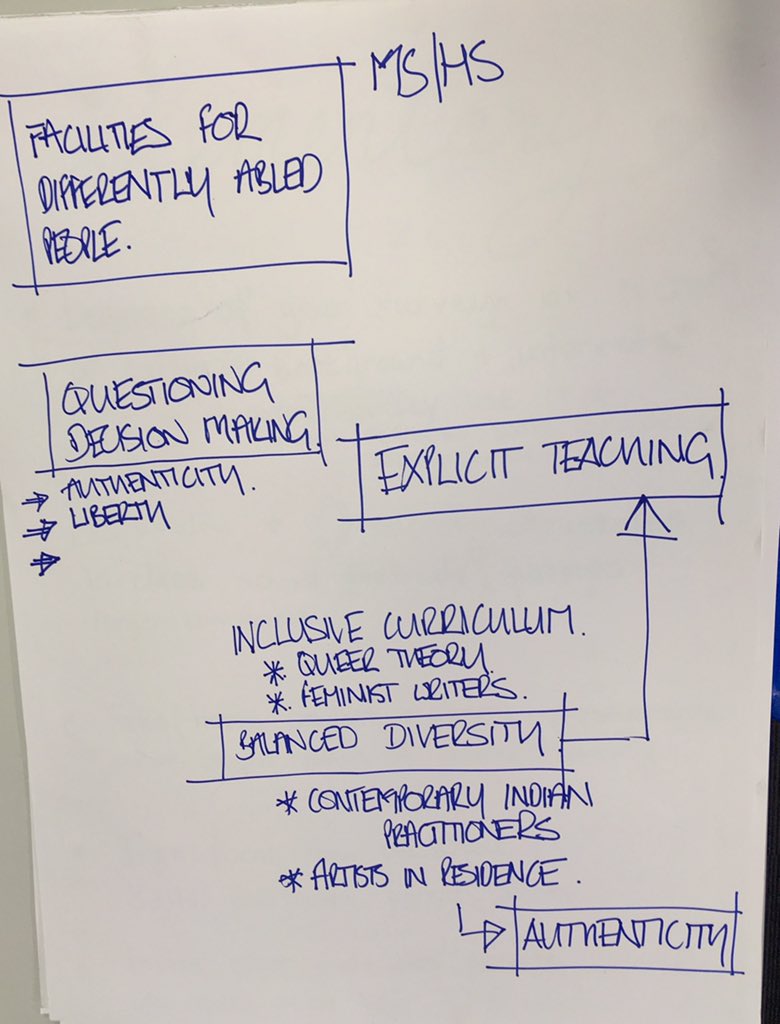 MS/HS
FACILITIES FOR
DIFFERENTLY ABLED
PEOPLE.
QUESTIONING
DECISION MAKING.
→ AUTHENTICITY.
→ LIBERTY
→
EXPLICIT TEACHING.
INCLUSIVE CURRICULUM.
* QUEER THEORY.
* FEMINIST WRITERS.
BALANCED DIVERSITY.
* CONTEMPORARY INDIAN
PRACTITIONERS
* ARTISTS IN RESIDENCE.
↳ AUTHENTICITY